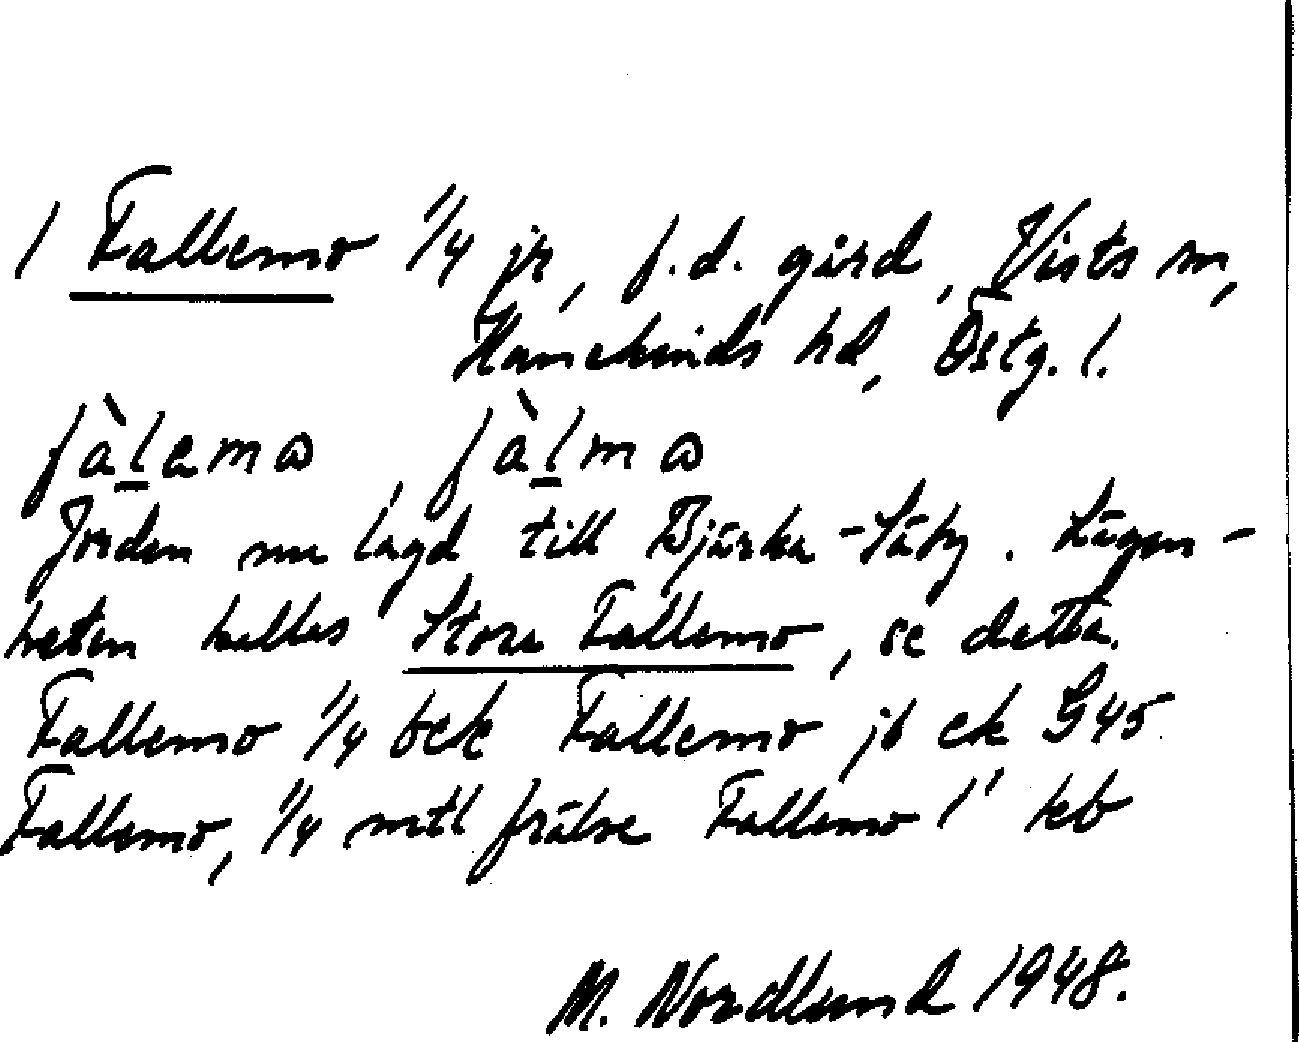 1 Fallemo 1/4 jr, f.d. gård, Vists sn,
Hanekinds hd, Östg. l.
fàlema fàlma
Jorden nu lagd till Bjärka-Säby. Lägen-
heten kallas Stora Fallemo, se detta.
Fallemo 1/4 bek Fallemo jb ek G45
Fallemo, 1/4 mtl frälse Fallemo 1' kb
M. Nordlund 1948.